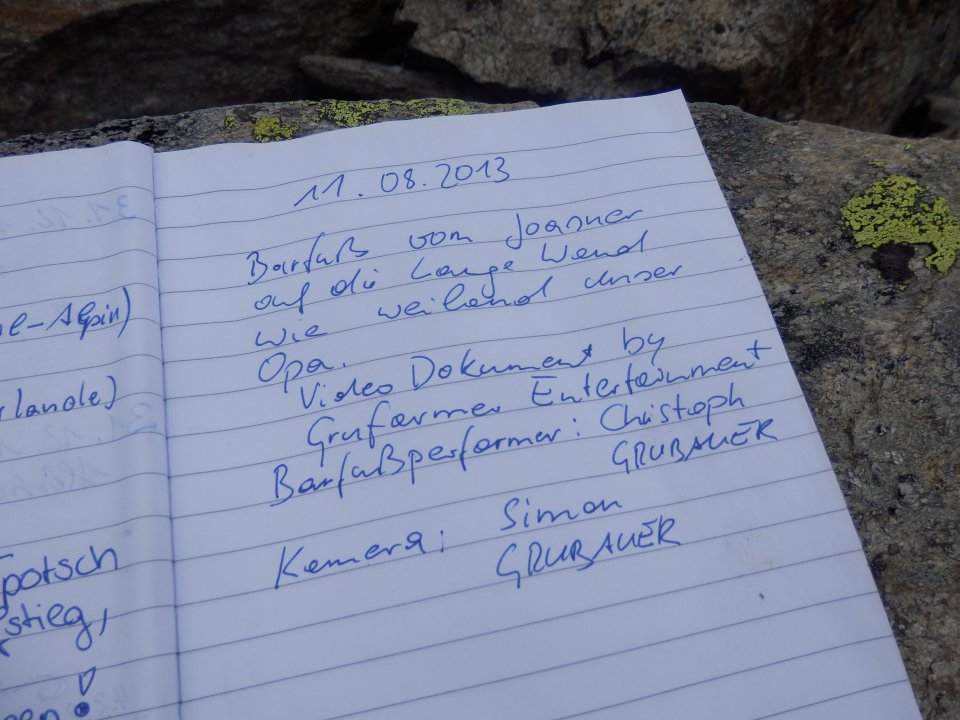 11.08.2013
Barfuß vom Joanner
auf die Lange Wand
wie weiland unser
Opa.
Video Dokument by
Gruformer Entertainment
Barfußperformer: Christoph
GRUBAUER
Kamera: Simon
GRUBAUER
-Alpin)
lande)
potsch
stieg,
!